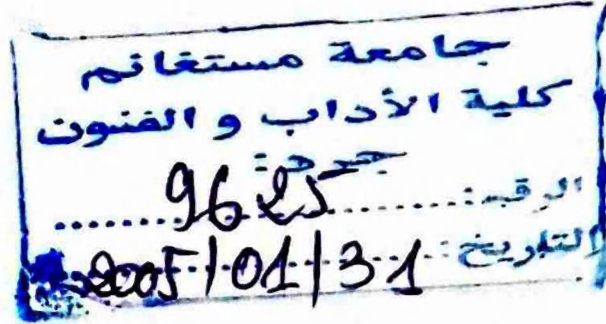 جامعة مستغانم
كلية الآداب و الفنون
جرد:
الرقم: 9625
التاريخ: 2005/01/31